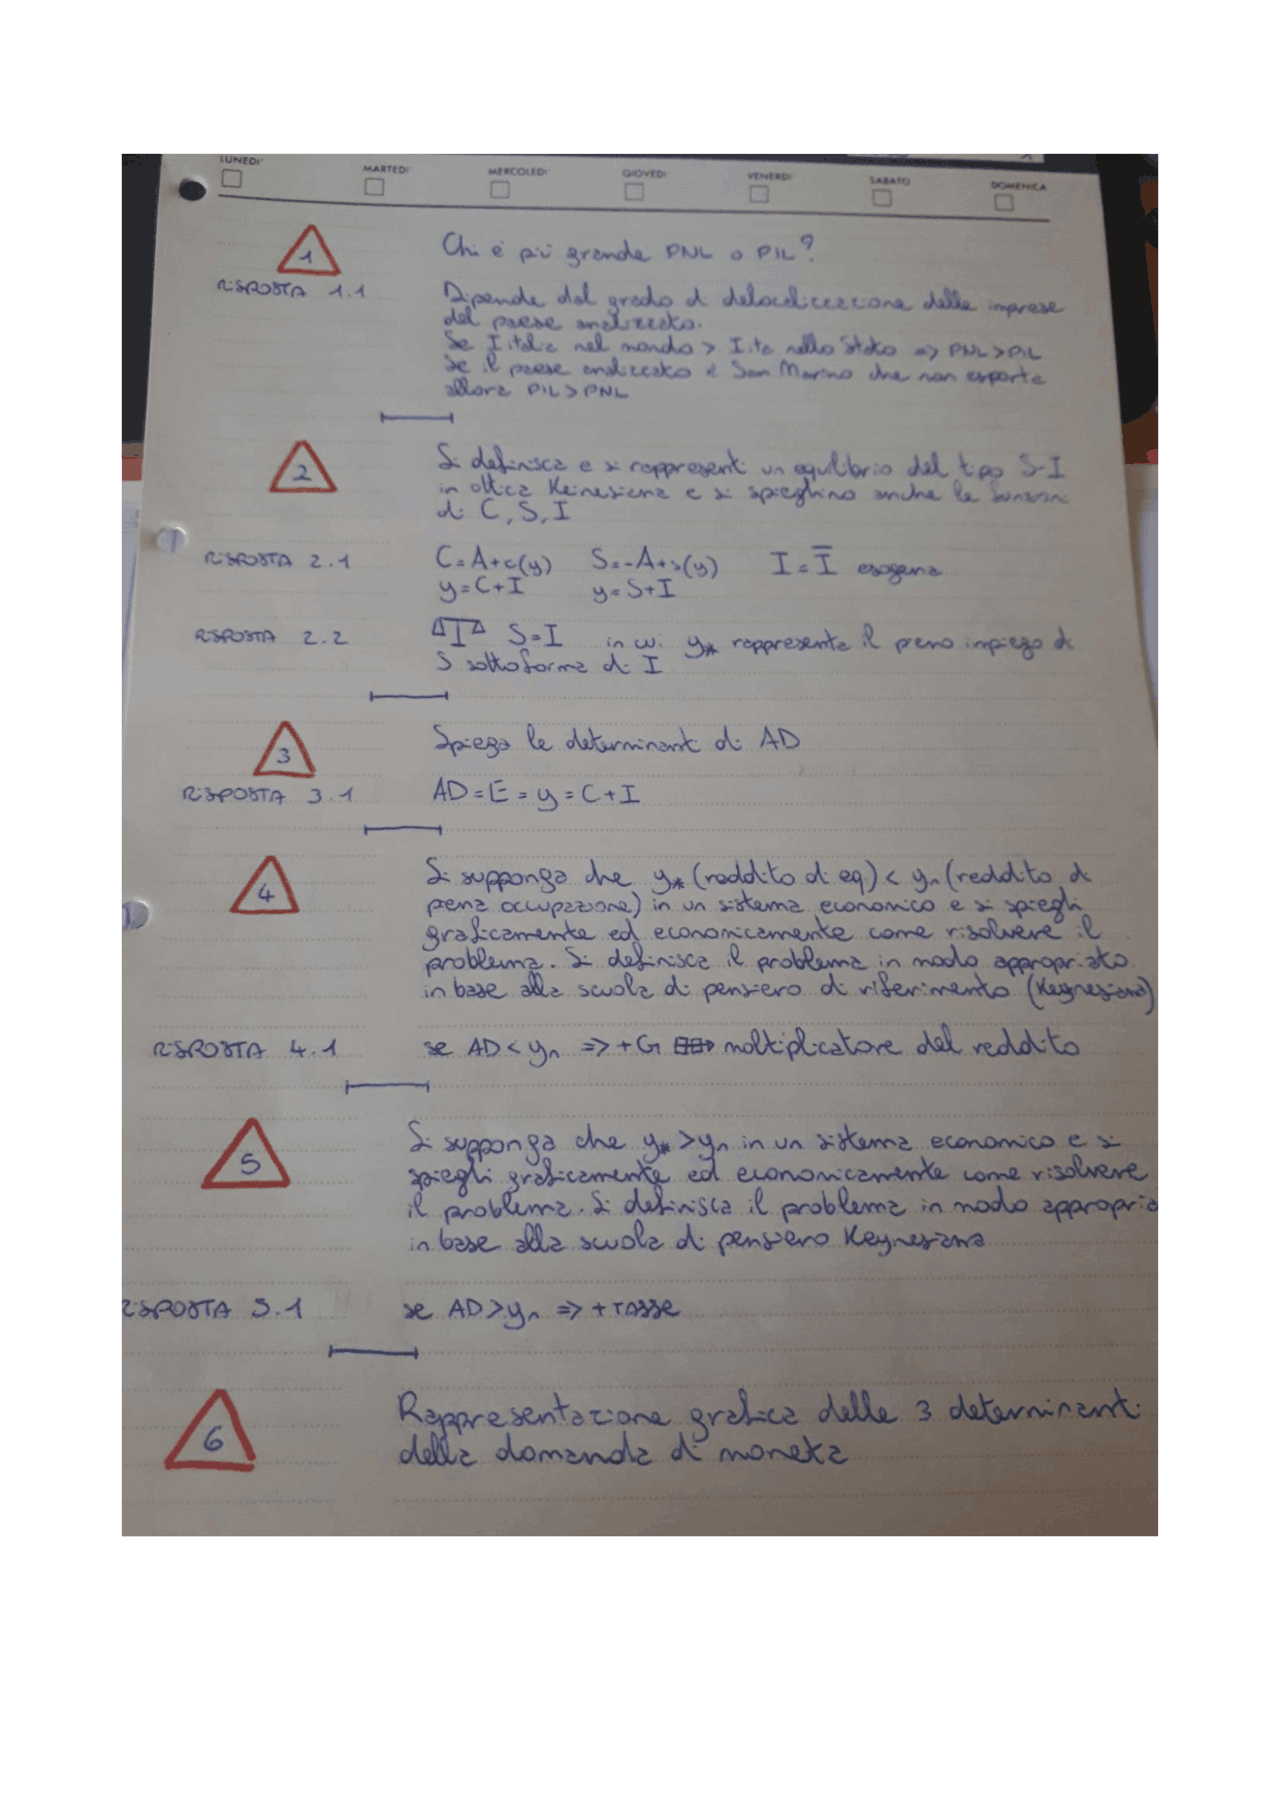 LUNEDI' MARTEDI' MERCOLEDI' GIOVEDI' VENERDI' SABATO DOMENICA
1 Chi è più grande PNL o PIL?
RISPOSTA 1.1 Dipende dal grado di delocalizzazione delle imprese
del paese analizzato.
Se I italia nel mondo > I ita nello Stato => PNL>PIL
Se il paese analizzato è San Marino che non esporta
allora PIL>PNL
2 Si definisca e si rappresenti un equilibrio del tipo S-I
in ottica Keinesiana e si spieghino anche le funzioni
di C, S, I
RISPOSTA 2.1 C=A+c(y) S=-A+s(y) I=Ī esogena
y=C+I y=S+I
RISPOSTA 2.2 S=I in cui y* rappresenta il pieno impiego di
S sottoforma di I
3 Spiega le determinanti di AD
RISPOSTA 3.1 AD=E=y=C+I
4 Si supponga che y* (reddito di eq.) < yn (reddito di
piena occupazione) in un sistema economico e si spieghi
graficamente ed economicamente come risolvere il
problema. Si definisca il problema in modo appropriato
in base alla scuola di pensiero di riferimento (Keynesiana)
RISPOSTA 4.1 se AD<yn => +G moltiplicatore del reddito
5 Si supponga che y*>yn in un sistema economico e si
spieghi graficamente ed economicamente come risolvere
il problema. Si definisca il problema in modo appropria
in base alla scuola di pensiero Keynesiana
RISPOSTA 5.1 se AD>yn => +TASSE
6 Rappresentazione grafica delle 3 determinanti
della domanda di moneta